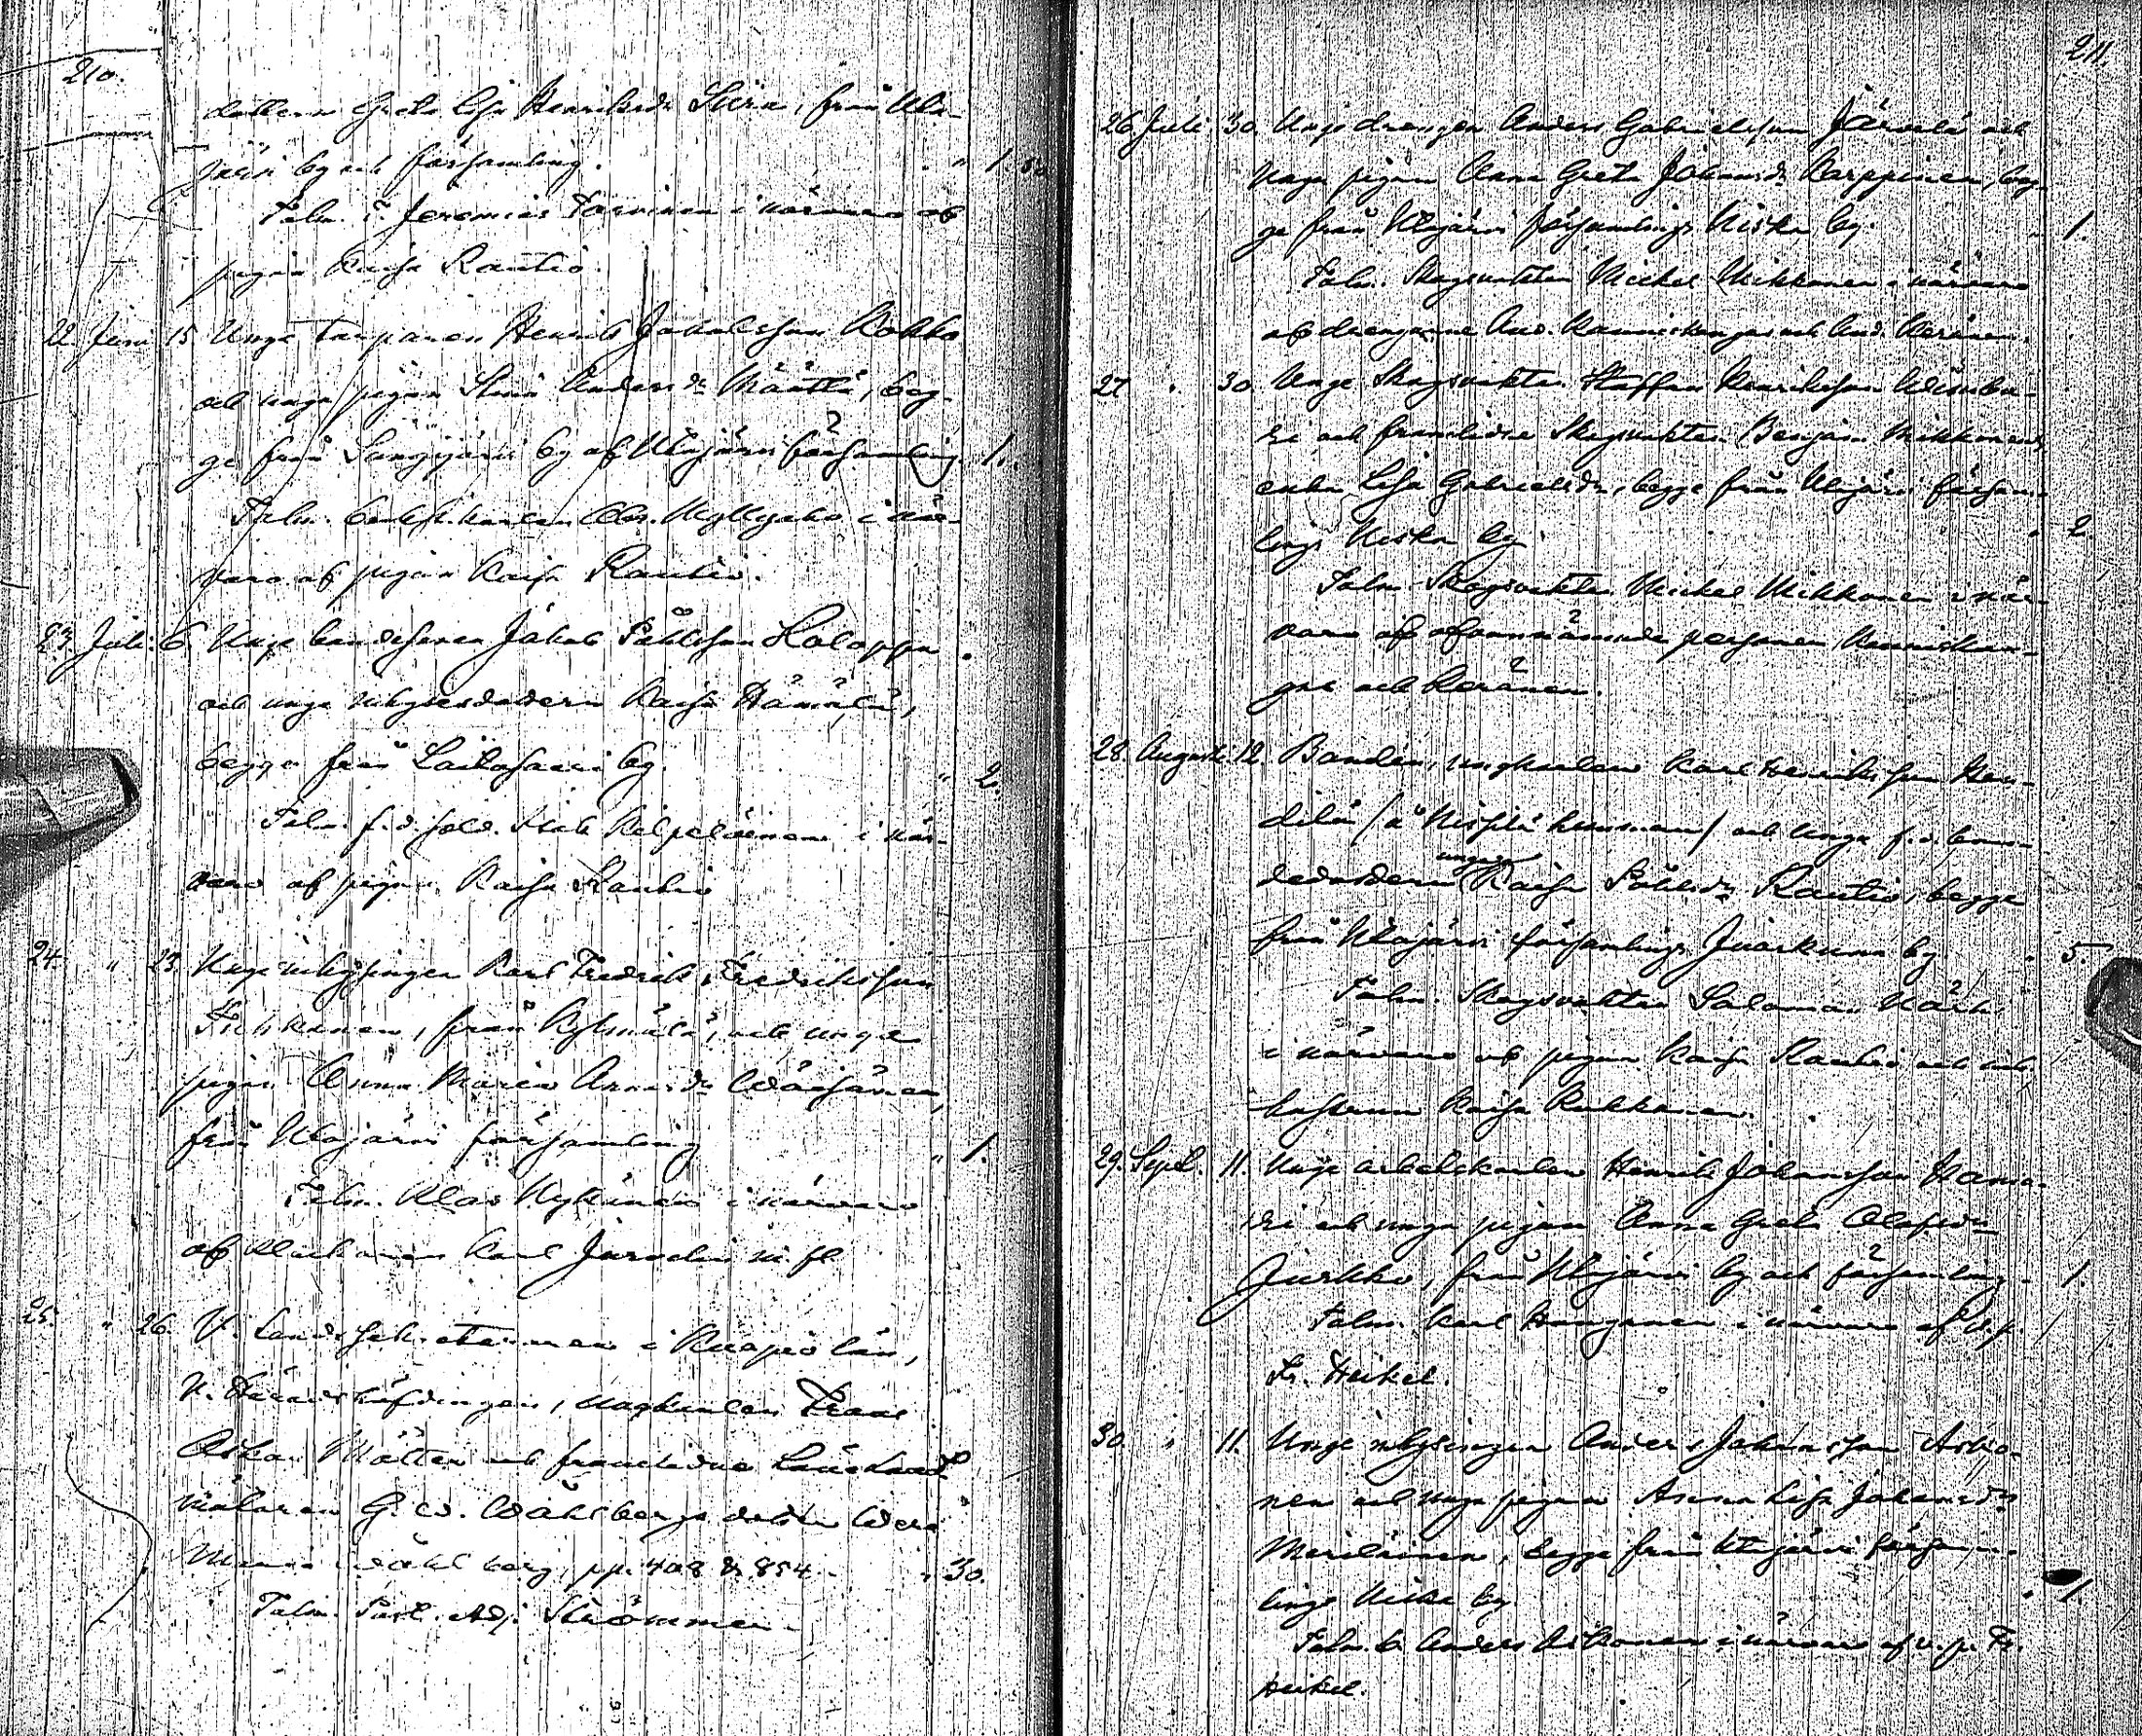 210.
dottern Greta Lisa Henriksdr Siira, från Ula-
järvi by och församling. " 1. 50
Taln. T. Jeremias Tarvinen i närvaro af
pigan Kaisa Rautio.
22. Juni 15 Unge torparen Henrik Jakobsson Rokko
och unga pigan Stina Andersdr Määttä, beg-
ge från Särgijärvi by af Ulajärvi församling. 1.
Taln. Ol. Myllyaho i när-
varo af pigan Kaisa Rautio.
23. Juli 6. Unge bondesonen Jakob Påhlsson Holappa
och unga inhysesdottern Kaisa Hämälä,
begge från Laitasaari by. " 2.
Taln. f.d. sold. Isak Kilpeläinen i när-
varo af pigan Kaisa Rautio
24. " 23. Unge inhysingen Karl Fredrik Fredriksson
Tuhkanen, från Kylmälä, och unga
pigan Anna Maria Annasdr Wäisänen,
från Ulajärvi församling " 1.
Taln. Klas Nykänen i närvaro
af klockaren Karl Jurvelin m. fl.
25. " 26. V. Landssekreteraren i Kuopio län,
V. Häradshöfdingen, ungkarlen Frans
Oskar Mätter och framlidne Länelandt
mätaren G. W. Wåhlbergs dotter Wera
Maria Wåhlberg, pp. 408 & 854. " 30.
Taln. Past. Adj. Strömmer
211.
26. Juli 30. Unge drengen Anders Gabrielsson Järvelä och
unga pigan Anna Greta Johansdr Karppinen, beg-
ge från Ulajärvi församlings Niska by. " 1.
Taln. Skogsvakten Mickel Mikkonen i närvaro
af drengarne And. Kanniskangas och And. Keränen.
27 " 30. Unge Skogsvakten Staffan Henriksson
ri och framlidne Skogsvakten Benjam. Mikkonens
enka Lisa Gabrielsdr, begge från Ulajärvi försam-
lings Niska by. " 2.
Taln. Skogsvakten Mickel Mikkonen i när-
varo af ofvannämnde personer Kanniskan-
gas och Keränen.
28. Augusti 12. Bonden, ungkarlen Karl Henriksson Hen-
dilä / å Nispilä hemman / och unga f.d. bon-
dedottern pigan Kaisa Påhlsdr Rautio, begge
från Ulajärvi församlings Juorkuna by. " 5.
Taln. Skogsvakten Salomon Kärki
i närvaro af pigan Kaisa Rautio och inh.
hustrun Kaisa Rukkanen.
29. Sept. 11. Unge arbetskarlen Henrik Johansson Kama-
ri och unga pigan Anna Greta Olofsdr
Jurkko, från Ulajärvi by och församling. " 1.
Taln. Karl i närvaro af V. p.
Fr. Heikel.
30. " 11. Unge inhysingen Anders Johansson Asika-
nen och unga pigan Anna Lisa Johansdr
Meriläinen, begge från Ulajärvi försam-
lings Niska by. " 1.
Taln. b. Anders Asikanen i närvaro af v. p. Fr.
Heikel.